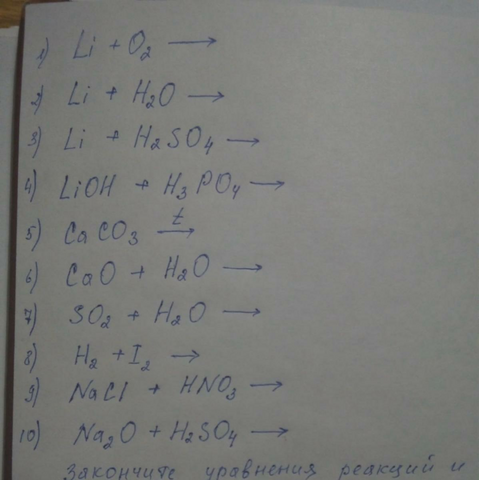 1) Li + O₂ →
2) Li + H₂O →
3) Li + H₂SO₄ →
4) LiOH + H₃PO₄ →
5) CaCO₃ t→
6) CaO + H₂O →
7) SO₂ + H₂O →
8) H₂ + I₂ →
9) NaCl + HNO₃ →
10) Na₂O + H₂SO₄ →
Закончите уравнения реакций и